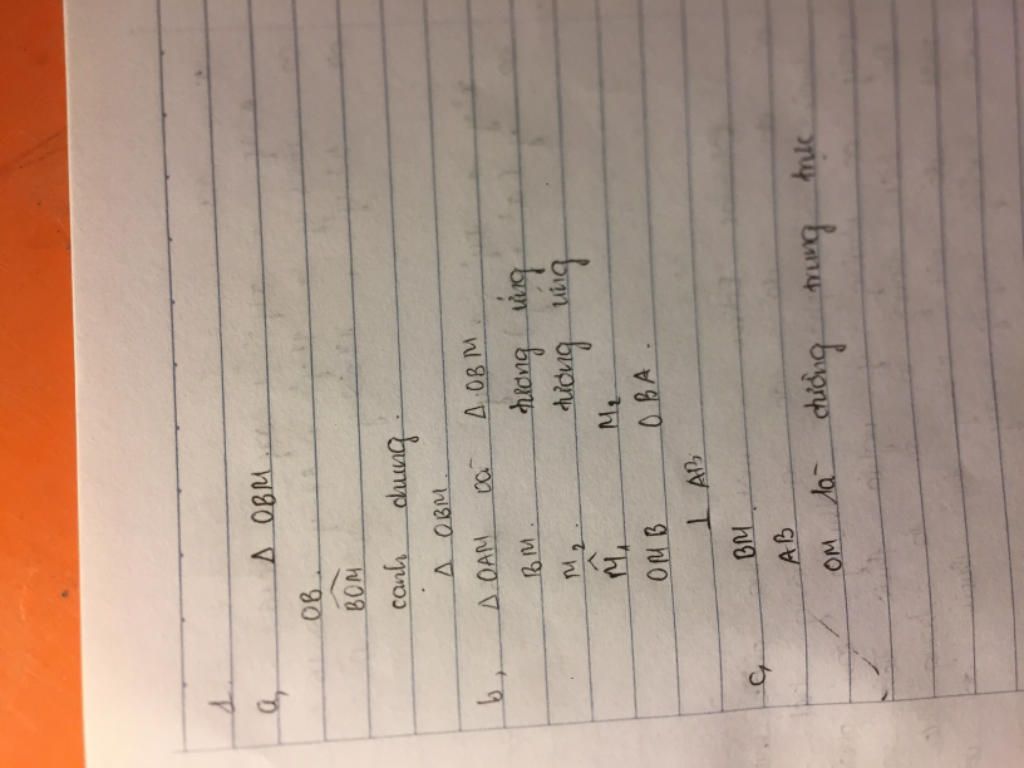 1
a, Δ OBM
OB.
BÔM
canh chung.
Δ OBM.
b, Δ OAM có Δ OBM.
BM. tương ứng
M₂ tương ứng
M̂₁ M₂
OMB OBA.
⊥ AB
c, BM.
AB
OM là đường trung trực